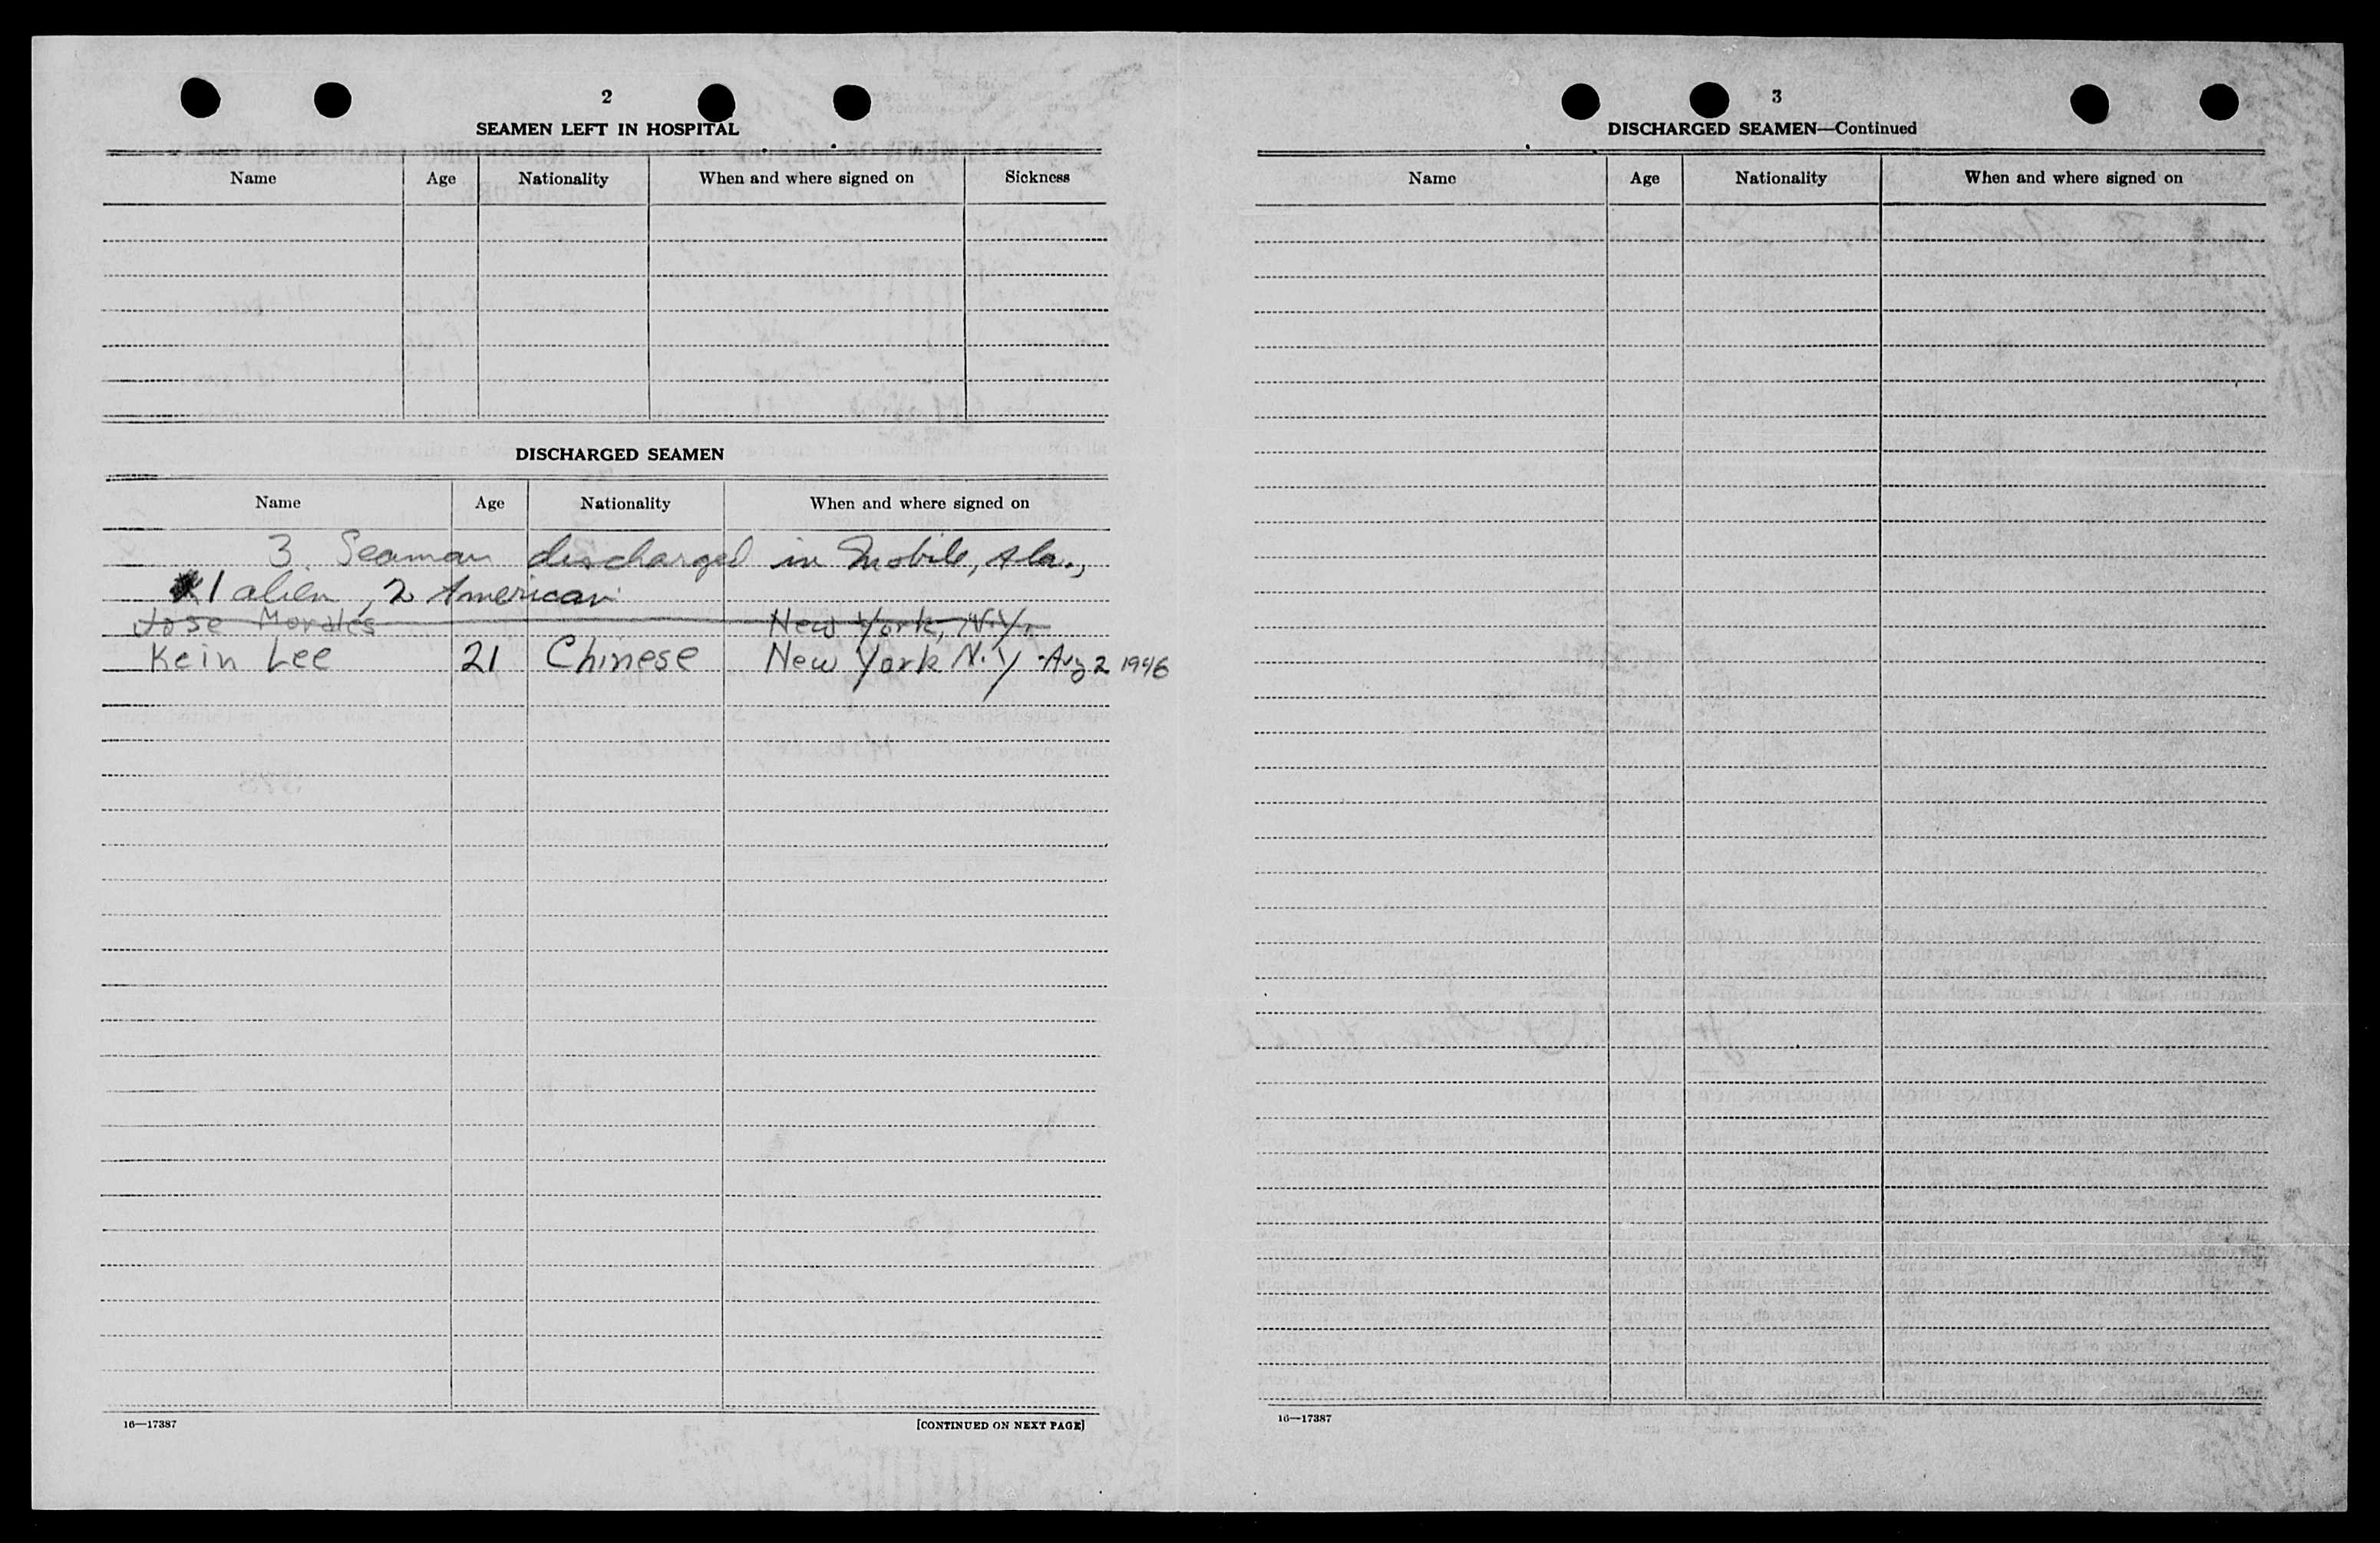 2
SEAMEN LEFT IN HOSPITAL
Name Age Nationality When and where signed on Sickness
DISCHARGED SEAMEN
Name Age Nationality When and where signed on
3 Seaman discharged in Mobile, Ala.,
1 alien, 2 American
Jose Morales New York, N.Y.
Kein Lee 21 Chinese New York N.Y Aug 2 1946
16—17387 [CONTINUED ON NEXT PAGE]
3
DISCHARGED SEAMEN—Continued
Name Age Nationality When and where signed on
16—17387